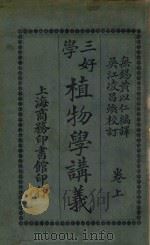 無錫黃以仁編譯
吳江凌昌煥校訂
卷上
三好學
植物學講義
上海商務印書館印